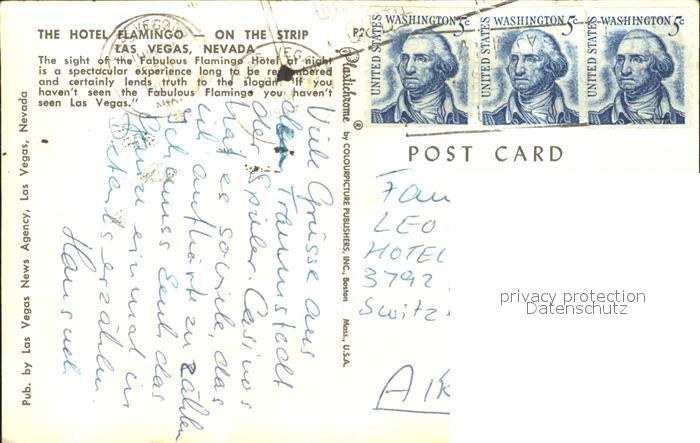 THE HOTEL FLAMINGO — ON THE STRIP
LAS VEGAS, NEVADA
The sight of the Fabulous Flamingo Hotel at night
is a spectacular experience long to be remembered
and certainly lends truth to the slogan "If you
haven't seen the Fabulous Flamingo you haven't
seen Las Vegas."
Pub. by Las Vegas News Agency, Las Vegas, Nevada
Plastichrome ® by COLOURPICTURE PUBLISHERS, INC., Boston Mass., U.S.A.
UNITED STATES WASHINGTON 5c
UNITED STATES WASHINGTON 5c
UNITED STATES WASHINGTON 5c
POST CARD
Viele Grüsse aus
dem Traumstedt
der Spieler. Casinos
hat es soviele, das
ich aufhörte zu zählen
das
einmal in
Details erzählen.
LEO
HOTEL
3792
Switz
privacy protection
Datenschutz